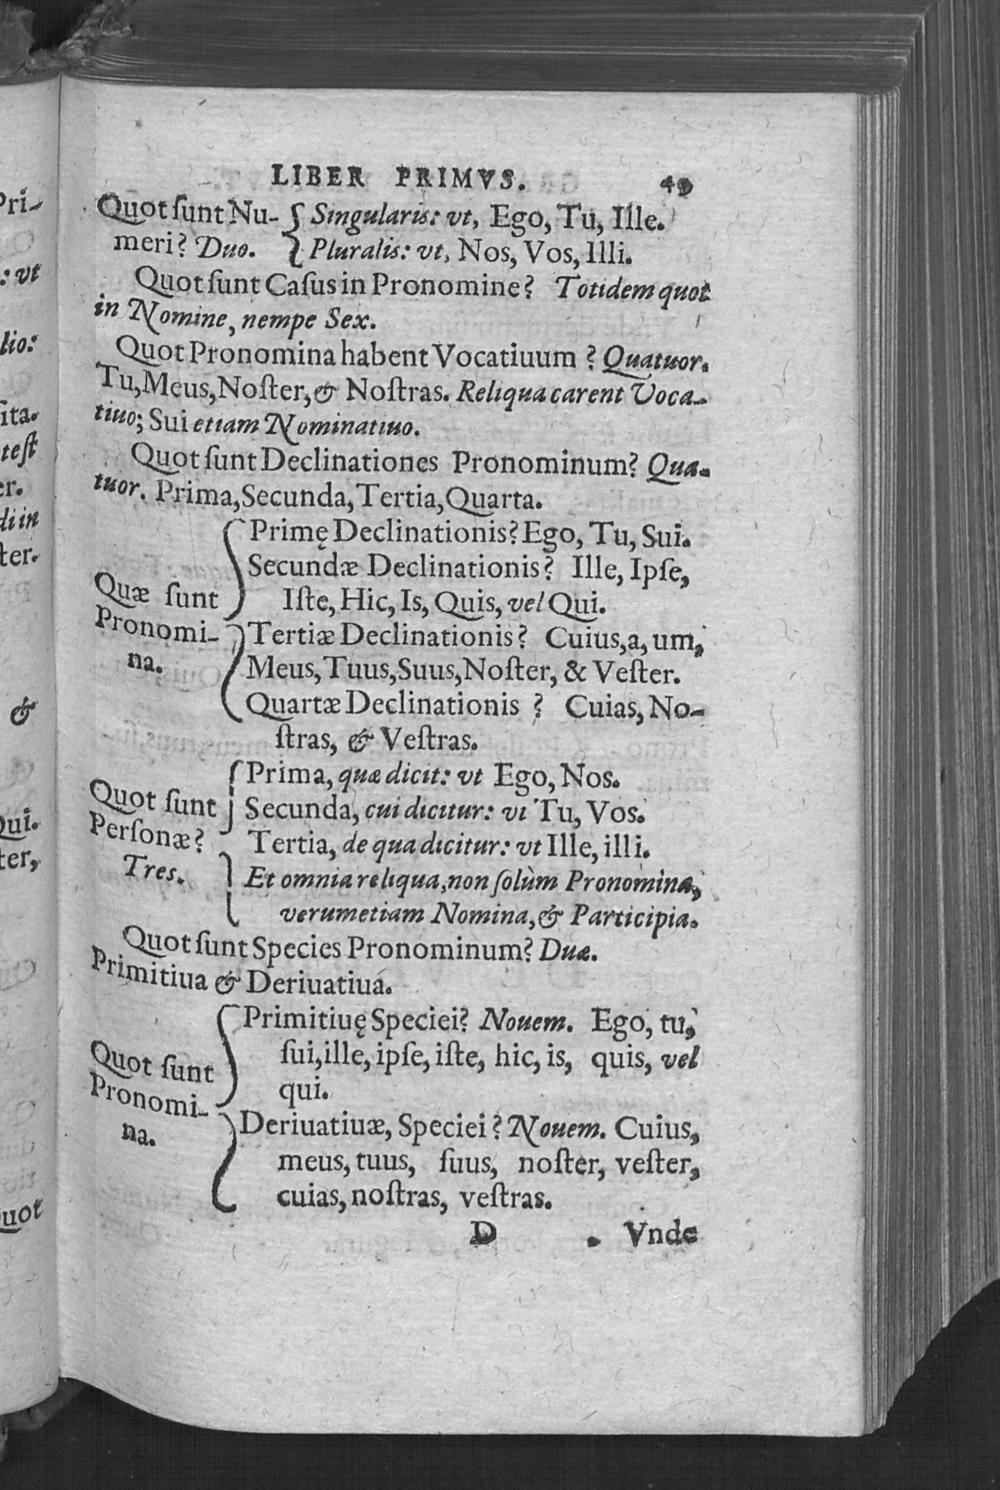 LIBER PRIMVS. 49
Quot ſunt Nu- { Singularis: vt, Ego, Tu, Ille.
meri? Duo. { Pluralis: vt, Nos, Vos, Illi.
Quot ſunt Caſus in Pronomine? Totidem quot
in Nomine, nempe Sex.
Quot Pronomina habent Vocatiuum? Quatuor.
Tu, Meus, Noſter, & Noſtras. Reliqua carent Voca-
tiuo; Sui etiam Nominatiuo.
Quot ſunt Declinationes Pronominum? Qua-
tuor. Prima, Secunda, Tertia, Quarta.
Quæ ſunt
Pronomi-
na.
Primę Declinationis? Ego, Tu, Sui.
Secundæ Declinationis? Ille, Ipſe,
Iſte, Hic, Is, Quis, vel Qui.
Tertiæ Declinationis? Cuius, a, um,
Meus, Tuus, Suus, Noſter, & Veſter.
Quartæ Declinationis? Cuias, No-
ſtras, & Veſtras.
Quot ſunt
Perſonæ?
Tres.
Prima, quæ dicit: vt Ego, Nos.
Secunda, cui dicitur: vt Tu, Vos.
Tertia, de qua dicitur: vt Ille, illi.
Et omnia reliqua, non ſolùm Pronomina,
verumetiam Nomina, & Participia.
Quot ſunt Species Pronominum? Duæ.
Primitiua & Deriuatiua.
Quot ſunt
Pronomi-
na.
Primitiuę Speciei? Nouem. Ego, tu,
ſui, ille, ipſe, iſte, hic, is, quis, vel
qui.
Deriuatiuæ, Speciei? Nouem. Cuius,
meus, tuus, ſuus, noſter, veſter,
cuias, noſtras, veſtras.
D Vnde